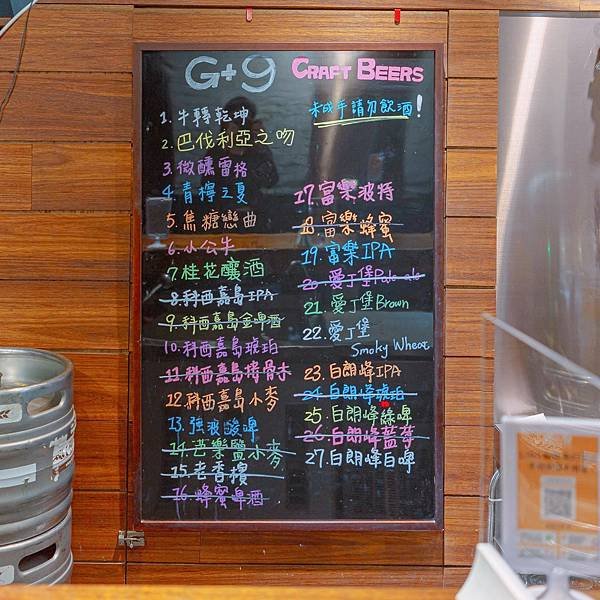 G+9 CRAFT BEERS
未成年請勿飲酒!
1. 牛轉乾坤
2. 巴伐利亞之吻
3. 微醺雷格
4. 青檸之夏
5. 焦糖戀曲
6. 小公牛
7. 桂花釀酒
8. 科西嘉島IPA
9. 科西嘉島金啤酒
10. 科西嘉島琥珀
11. 科西嘉島接骨木
12. 科西嘉島小麥
13. 強波酸啤
14. 芒樂鹽小麥
15. 老香檳
16. 蜂蜜啤酒
17. 富樂波特
18. 富樂蜂蜜
19. 富樂IPA
20. 愛丁堡Pale ale
21. 愛丁堡Brown
22. 愛丁堡
Smoky Wheat
23. 白朗峰IPA
24. 白朗峰琥珀
25. 白朗峰綠啤
26. 白朗峰藍莓
27. 白朗峰白啤